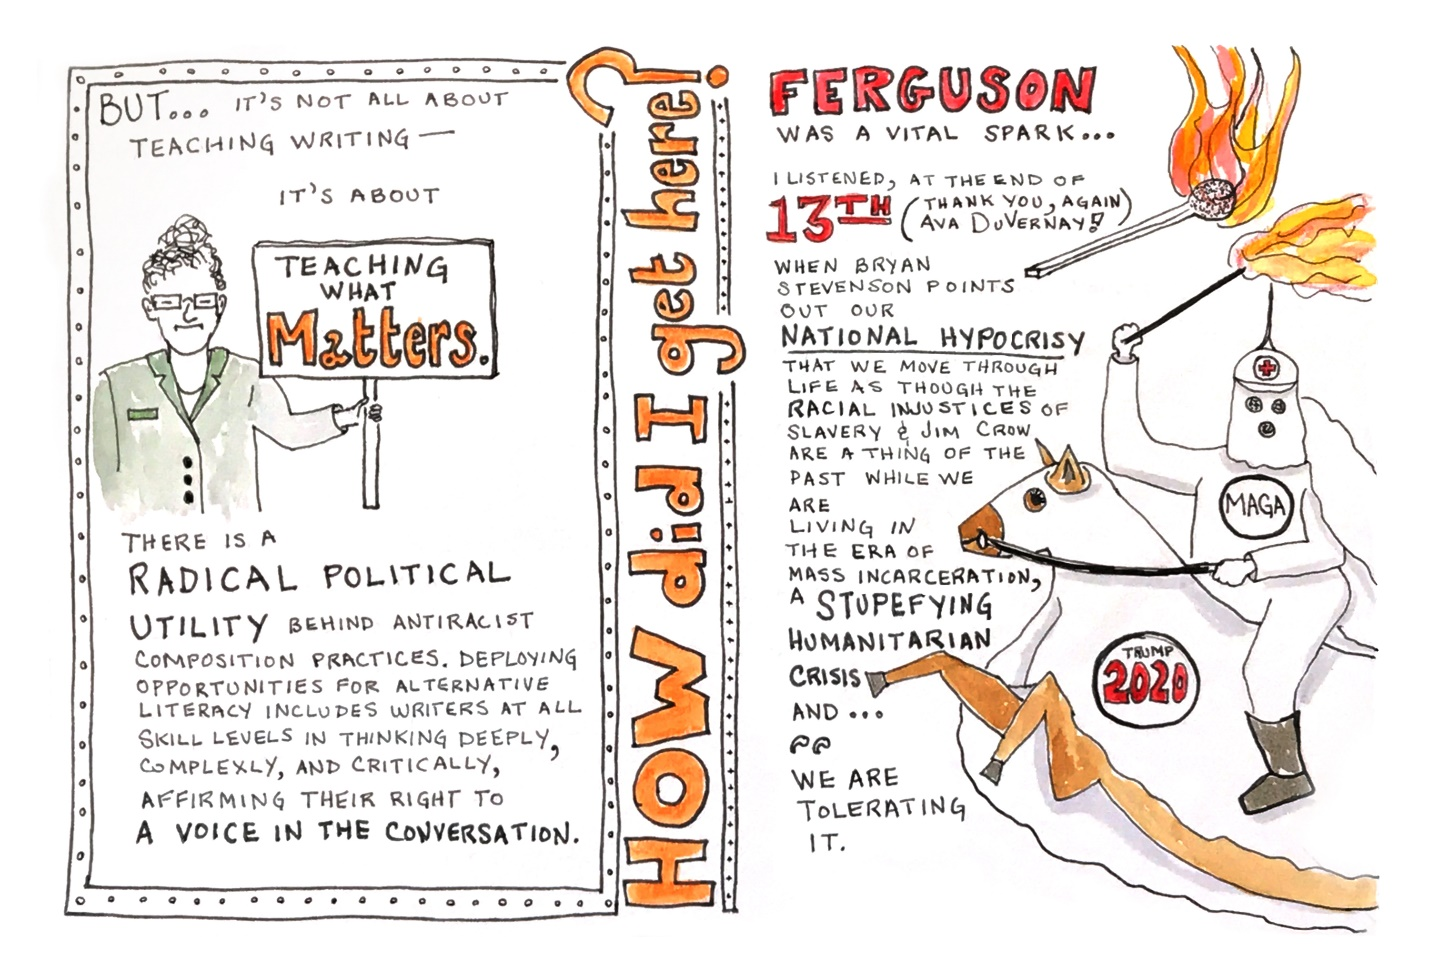 BUT... IT'S NOT ALL ABOUT
TEACHING WRITING—
IT'S ABOUT
TEACHING
WHAT
Matters.
THERE IS A
RADICAL POLITICAL
UTILITY BEHIND ANTIRACIST
COMPOSITION PRACTICES. DEPLOYING
OPPORTUNITIES FOR ALTERNATIVE
LITERACY INCLUDES WRITERS AT ALL
SKILL LEVELS IN THINKING DEEPLY,
COMPLEXLY, AND CRITICALLY,
AFFIRMING THEIR RIGHT TO
A VOICE IN THE CONVERSATION.
How did I get here?
FERGUSON
WAS A VITAL SPARK...
I LISTENED, AT THE END OF
13TH (THANK YOU, AGAIN
AVA DuVERNAY!)
WHEN BRYAN
STEVENSON POINTS
OUT OUR
NATIONAL HYPOCRISY
THAT WE MOVE THROUGH
LIFE AS THOUGH THE
RACIAL INJUSTICES OF
SLAVERY & JIM CROW
ARE A THING OF THE
PAST WHILE WE
ARE
LIVING IN
THE ERA OF
MASS INCARCERATION,
A STUPEFYING
HUMANITARIAN
CRISIS
AND ...
WE ARE
TOLERATING
IT.
MAGA
TRUMP
2020